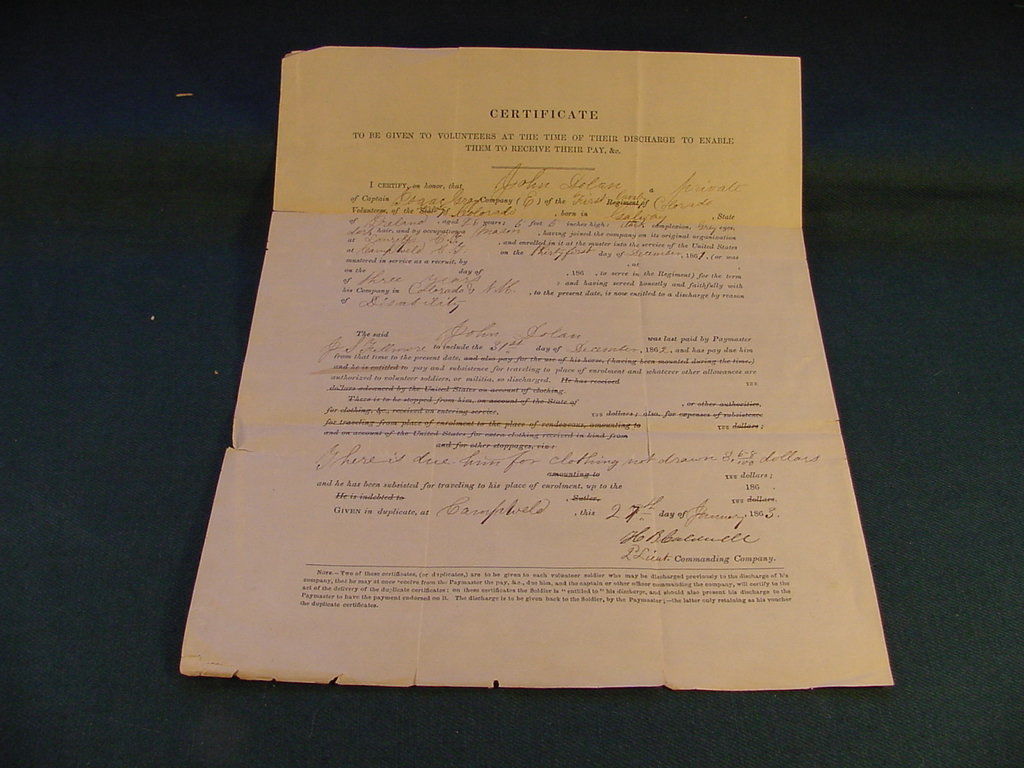 CERTIFICATE
TO BE GIVEN TO VOLUNTEERS AT THE TIME OF THEIR DISCHARGE TO ENABLE
THEM TO RECEIVE THEIR PAY, &c.
I CERTIFY, on honor, that John Dolan a Private
of Captain Company (E) of the First Regiment of Colorado
Volunteers, of the Colorado , born in Galway , State
of Ireland , aged years; 6 feet 6 inches high; dark complexion, Grey eyes,
dark hair, and by occupation a mason , having joined the company on its original organization
at , and enrolled in it at the muster into the service of the United States
at Camp Weld C.T. on the thirty first day of December, 1861, (or was
mustered in service as a recruit, by , at
on the day of , 186 , to serve in the Regiment) for the term
of three years : and having served honestly and faithfully with
his Company in Colorado & N.M. , to the present date, is now entitled to a discharge by reason
of Disability
The said John Dolan was last paid by Paymaster
J S Fillmore to include the 31st day of December, 1862, and has pay due him
from that time to the present date, and also pay for the use of his horse, (having been mounted during the time,)
and he is entitled to pay and subsistence for traveling to place of enrolment and whatever other allowances are
authorized to volunteer soldiers, or militia, so discharged. He has received
dollars advanced by the United States on account of clothing.
There is to be stopped from him, on account of the State of , or other authorities,
for clothing, &c., received on entering service, dollars; also, for expenses of subsistence
for traveling from place of enrolment to the place of rendezvous, amounting to dollars;
and on account of the United States for extra clothing received in kind from
and for other stoppages, viz:
There is due him for clothing not drawn 3 68/100 dollars
amounting to dollars;
and he has been subsisted for traveling to his place of enrolment, up to the 186 .
He is indebted to , Sutler, dollars.
GIVEN in duplicate, at Camp Weld , this 27th day of January, 1863.
H B Caldwell
2 Lieut. Commanding Company.
NOTE.—Two of these certificates, (or duplicates,) are to be given to each volunteer soldier who may be discharged previously to the discharge of his
company, that he may at once receive from the Paymaster the pay, &c., due him, and the captain or other officer commanding the company, will certify to the
act of the delivery of the duplicate certificates: on these certificates the Soldier is "entitled to" his discharge, and should also present his discharge to the
Paymaster to have the payment endorsed on it. The discharge is to be given back to the Soldier, by the Paymaster;—the latter only retaining as his voucher
the duplicate certificates.